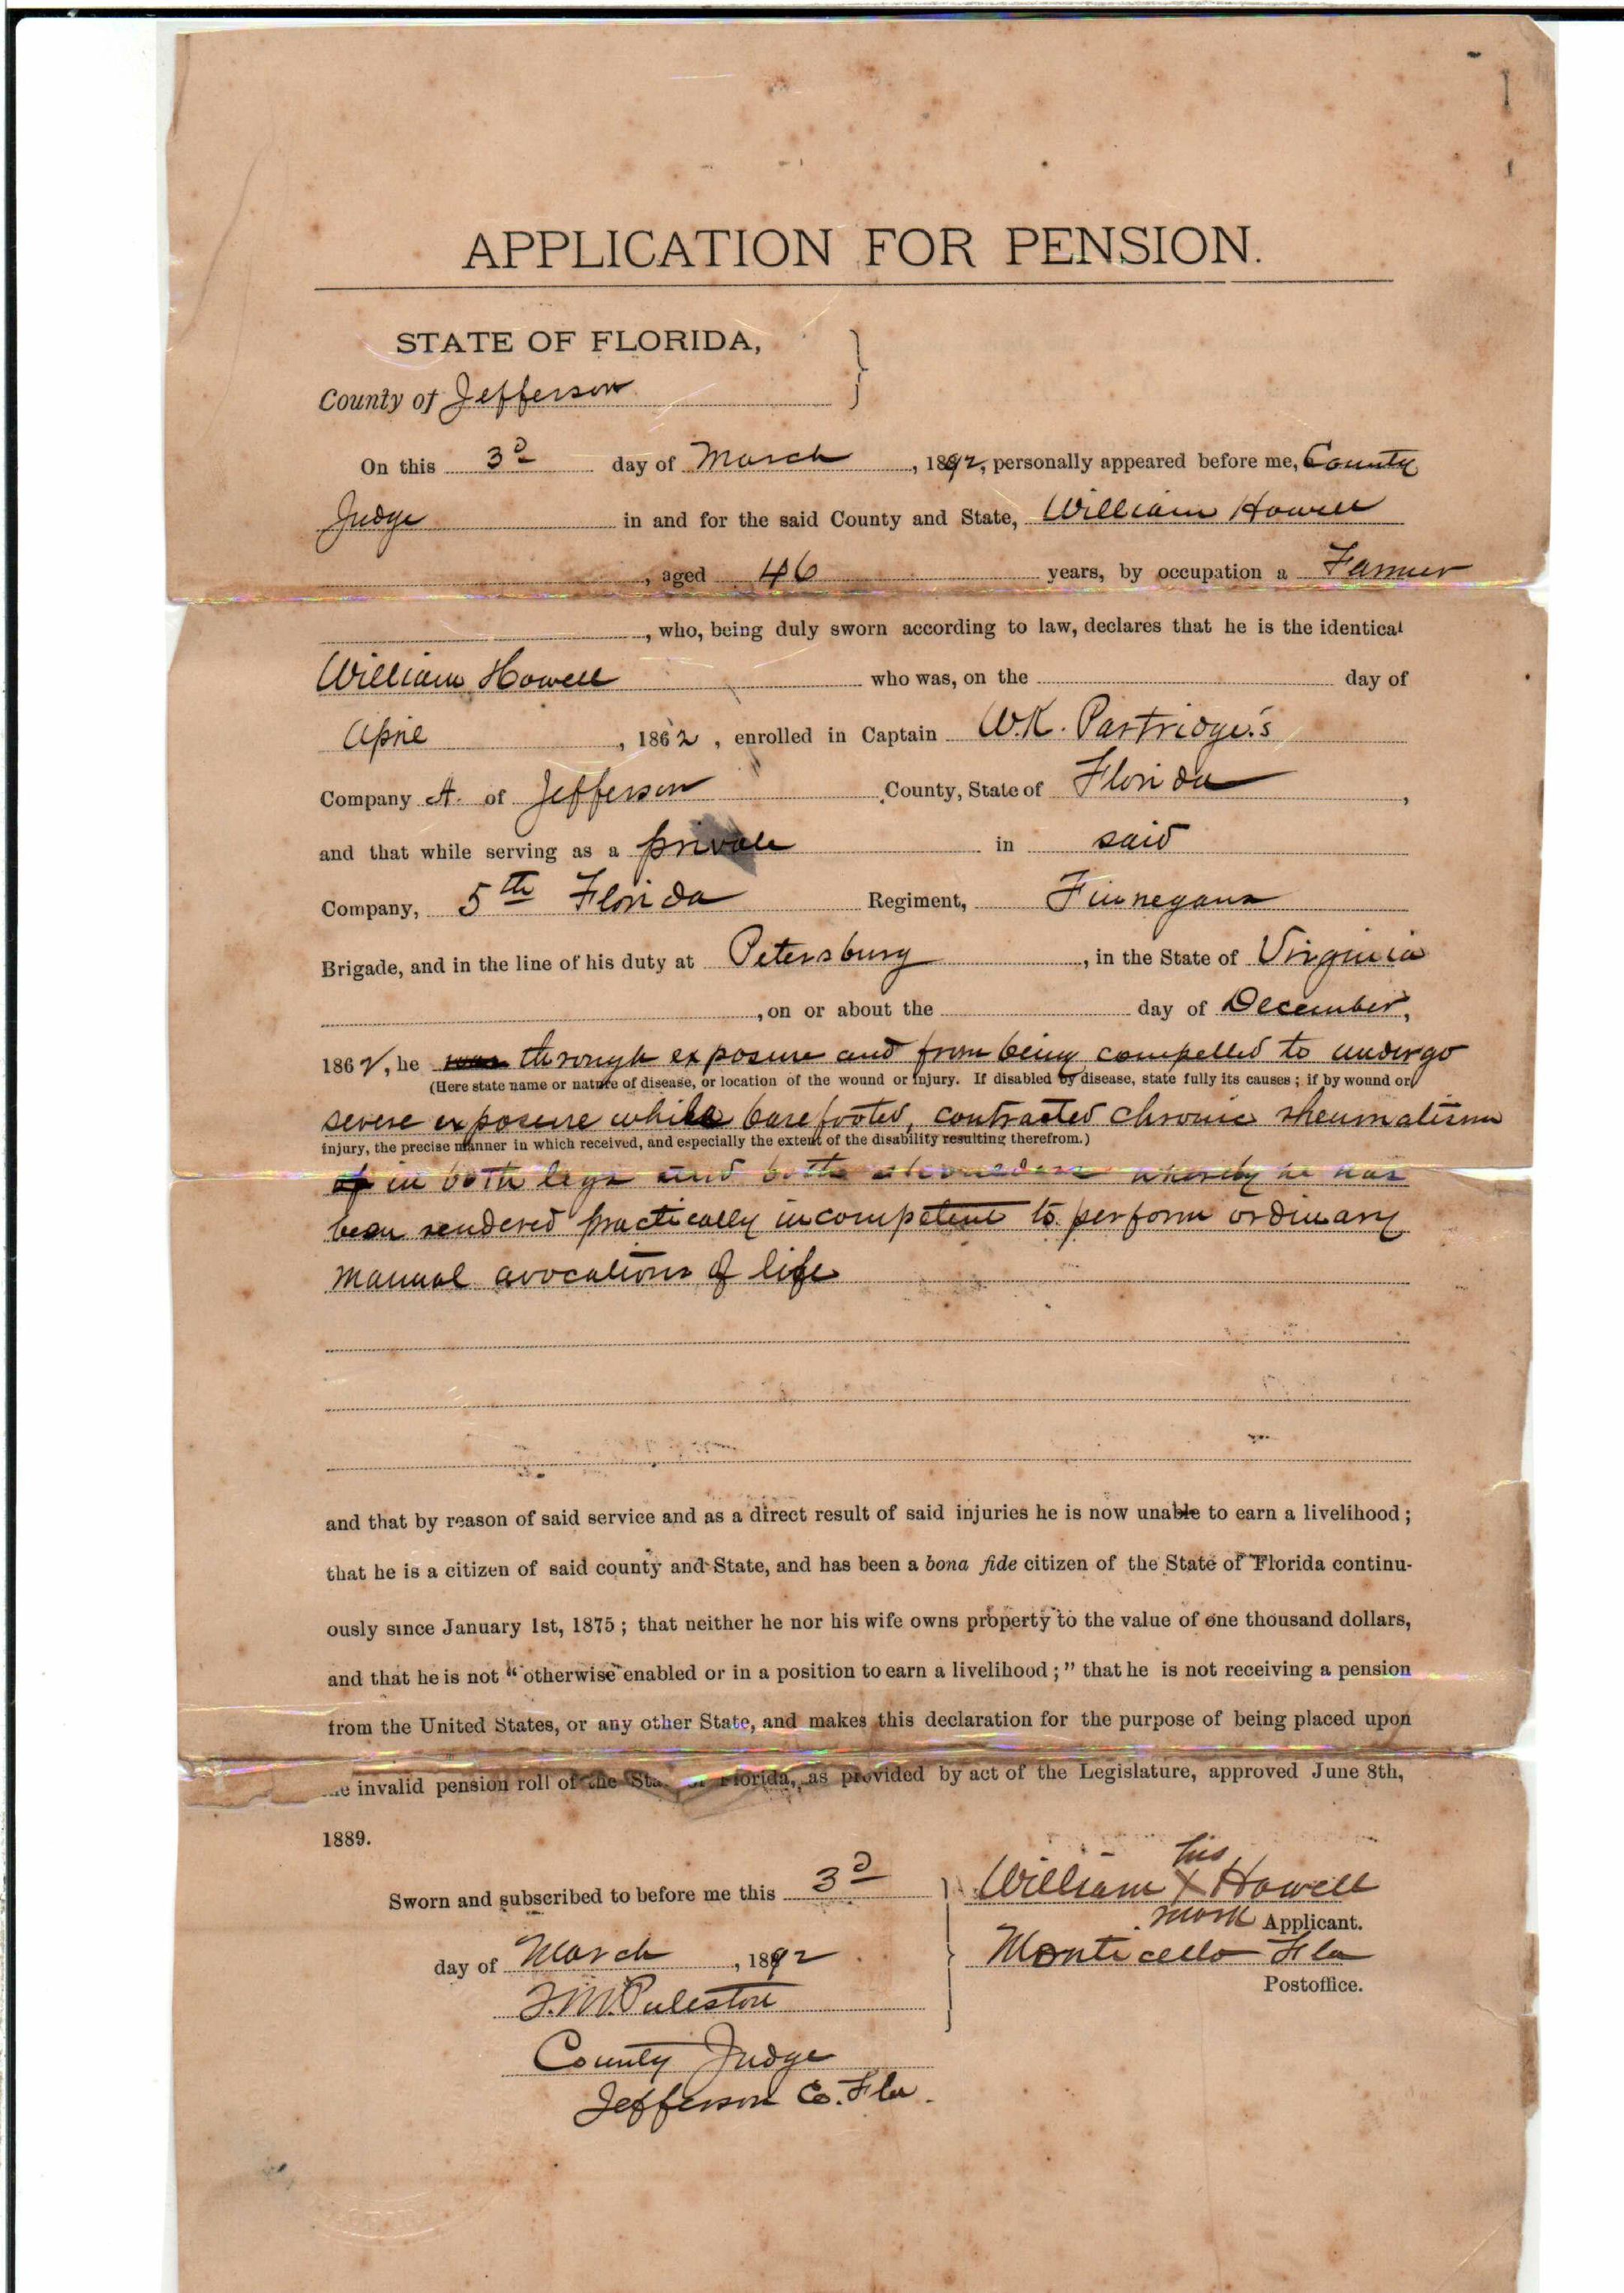 APPLICATION FOR PENSION.
STATE OF FLORIDA,
County of Jefferson
On this 3d day of March, 1892, personally appeared before me, County
Judge in and for the said County and State, William Howell
, aged 46 years, by occupation a Farmer
, who, being duly sworn according to law, declares that he is the identical
William Howell who was, on the day of
April, 1862, enrolled in Captain W.K. Partridge's
Company A. of Jefferson County, State of Florida,
and that while serving as a private in said
Company, 5th Florida Regiment, Finnegans
Brigade, and in the line of his duty at Petersburg, in the State of Virginia
, on or about the day of December,
1862, he through exposure and from being compelled to undergo
(Here state name or nature of disease, or location of the wound or injury. If disabled by disease, state fully its causes; if by wound or
severe exposure while barefooted, contracted chronic rheumatism
injury, the precise manner in which received, and especially the extent of the disability resulting therefrom.)
in both legs and both shoulders whereby he has
been rendered practically incompetent to perform ordinary
manual avocations of life
and that by reason of said service and as a direct result of said injuries he is now unable to earn a livelihood;
that he is a citizen of said county and State, and has been a bona fide citizen of the State of Florida continu-
ously since January 1st, 1875; that neither he nor his wife owns property to the value of one thousand dollars,
and that he is not "otherwise enabled or in a position to earn a livelihood;" that he is not receiving a pension
from the United States, or any other State, and makes this declaration for the purpose of being placed upon
invalid pension roll of the Florida, as provided by act of the Legislature, approved June 8th,
1889.
Sworn and subscribed to before me this 3d
day of March, 1892
T.M. Puleston
County Judge
Jefferson Co. Fla.
his
William X Howell
mark Applicant.
Monticello Fla
Postoffice.